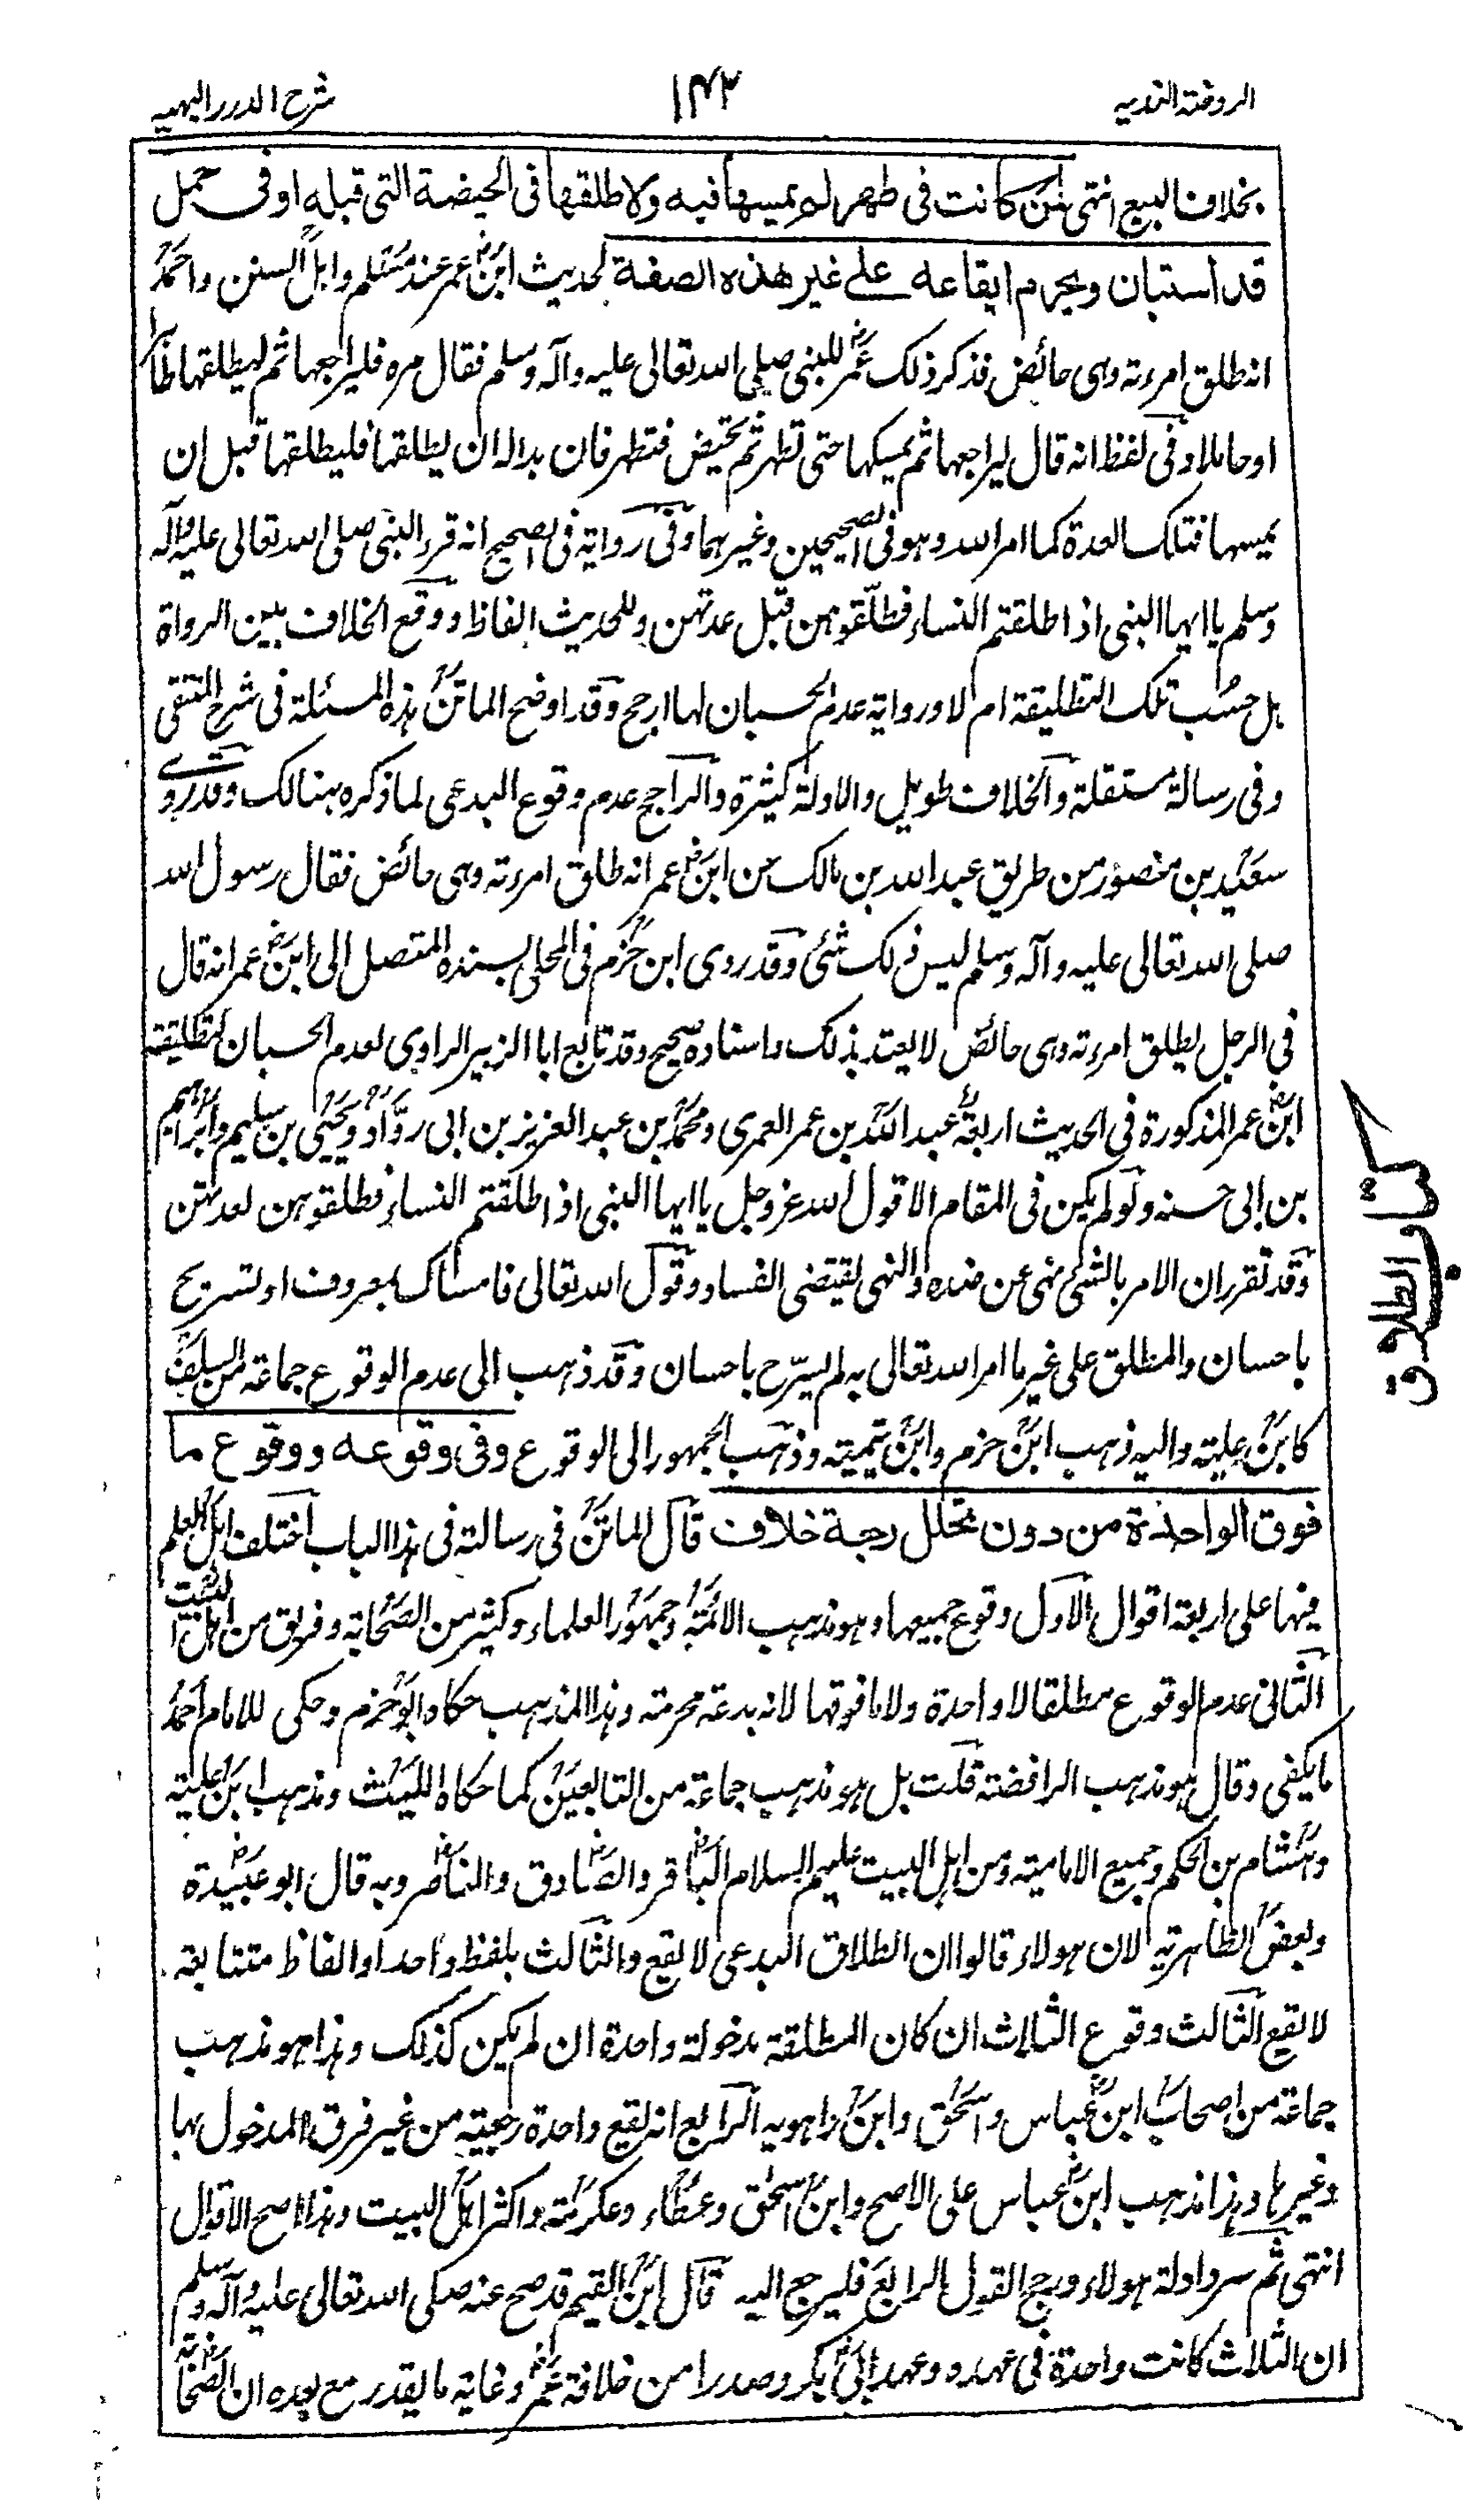 الروضة الندية
١٤٢
شرح الدرر البهية
بخلاف البيع انتهى لمن كانت فى طهر لم يمسها فيه ولا طلقها فى الحيضة التى قبله او فى حمل
قد استبان ويحرم ايقاعه على غير هذه الصفة لحديث ابن عمر عند مسلم واهل السنن واحمد
انه طلق امرءته وهى حائض فذكر ذلك عمر للنبى صلى الله تعالى عليه وآله وسلم فقال مره فليراجعها ثم ليطلقها طاهرا
او حاملا وفى لفظ انه قال ليراجعها ثم يمسكها حتى تطهر ثم تحيض فتطهر فان بدا له ان يطلقها فليطلقها قبل ان
يمسها فتلك العدة كما امر الله وهو فى الصحيحين وغيرهما وفى رواية فى الصحيح انه قرء النبى صلى الله تعالى عليه وآله
وسلم يا ايها النبى اذا طلقتم النساء فطلقوهن قبل عدتهن وللحديث الفاظ ووقع الخلاف بين الرواة
هل حسبت تلك التطليقة ام لا ورواية عدم الحسبان لها ارجح وقد اوضح الماتن هذه المسئلة فى شرح المنتقى
وفى رسالة مستقلة والخلاف طويل والادلة كثيرة والراجح عدم وقوع البدعى لما ذكره هنالك وقد روى
سعيد بن منصور من طريق عبد الله بن مالك عن ابن عمر انه طلق امرءته وهى حائض فقال رسول الله
صلى الله تعالى عليه وآله وسلم ليس ذلك شئى وقد روى ابن حزم فى المحلى بسنده المتصل الى ابن عمر انه قال
فى الرجل يطلق امرءته وهى حائض لا يعتد بذلك واسناده صحيح وقد تابع ابا الزبير الراوى لعدم الحسبان لتطليقة
ابن عمر المذكورة فى الحديث اربعة عبد الله بن عمر العمرى ومحمد بن عبد العزيز بن ابى رواد ويحيى بن سليم وابراهيم
بن ابى حسنه ولو لم يكن فى المقام الا قول الله عز وجل يا ايها النبى اذا طلقتم النساء فطلقوهن لعدتهن
وقد تقرر ان الامر بالشئى نهى عن ضده والنهى يقتضى الفساد وقول الله تعالى فامساك بمعروف او تسريح
باحسان والمطلق على غير ما امر الله تعالى به لم يسرّح باحسان وقد ذهب الى عدم الوقوع جماعة من السلف
كابن علية واليه ذهب ابن حزم وابن تيمية وذهب الجمهور الى الوقوع وفى وقوعه ووقوع ما
فوق الواحدة من دون تخلل رجعة خلاف قال الماتن فى رسالته فى هذا الباب اختلف اهل العلم
فيها على اربعة اقوال الاول وقوع جميعها وهو مذهب الائمة وجمهور العلماء وكثير من الصحابة وفريق من اهل البيت
الثانى عدم الوقوع مطلقا لا واحدة ولا ما فوقها لانه بدعة محرمة وهذا المذهب حكاه ابو حزم وحكى للامام احمد
ما يكفى وقال هو مذهب الرافضة قلت بل هو مذهب جماعة من التابعين كما حكاه الليث ومذهب ابن علية
وهشام بن الحكم وجميع الامامية ومن اهل البيت عليهم السلام الباقر والصادق والناصر وبه قال ابو عبيدة
وبعض الظاهرية لان هولاء قالوا ان الطلاق البدعى لا يقع والثالث بلفظ واحد او الفاظ متتابعة
لا يقع الثالث وقوع الثلاث ان كان المطلقة مدخولة واحدة ان لم يكن كذلك وهذا هو مذهب
جماعة من اصحاب ابن عباس واسحق وابن راهويه الرابع انه يقع واحدة رجعية من غير فرق المدخول بها
وغيرها وهذا مذهب ابن عباس على الاصح وابن اسحق وعطاء وعكرمة واكثر اهل البيت وهذا اصح الاقوال
انتهى ثم سرد ادلة هولاء ورجح القول الرابع فليرجع اليه قال ابن القيم قد صح عنه صلى الله تعالى عليه وآله وسلم
ان الثلاث كانت واحدة فى عهده وعهد ابى بكر وصدرا من خلافة عمر وغاية ما يقدر مع بعده ان الصحابة
كتاب الطلاق